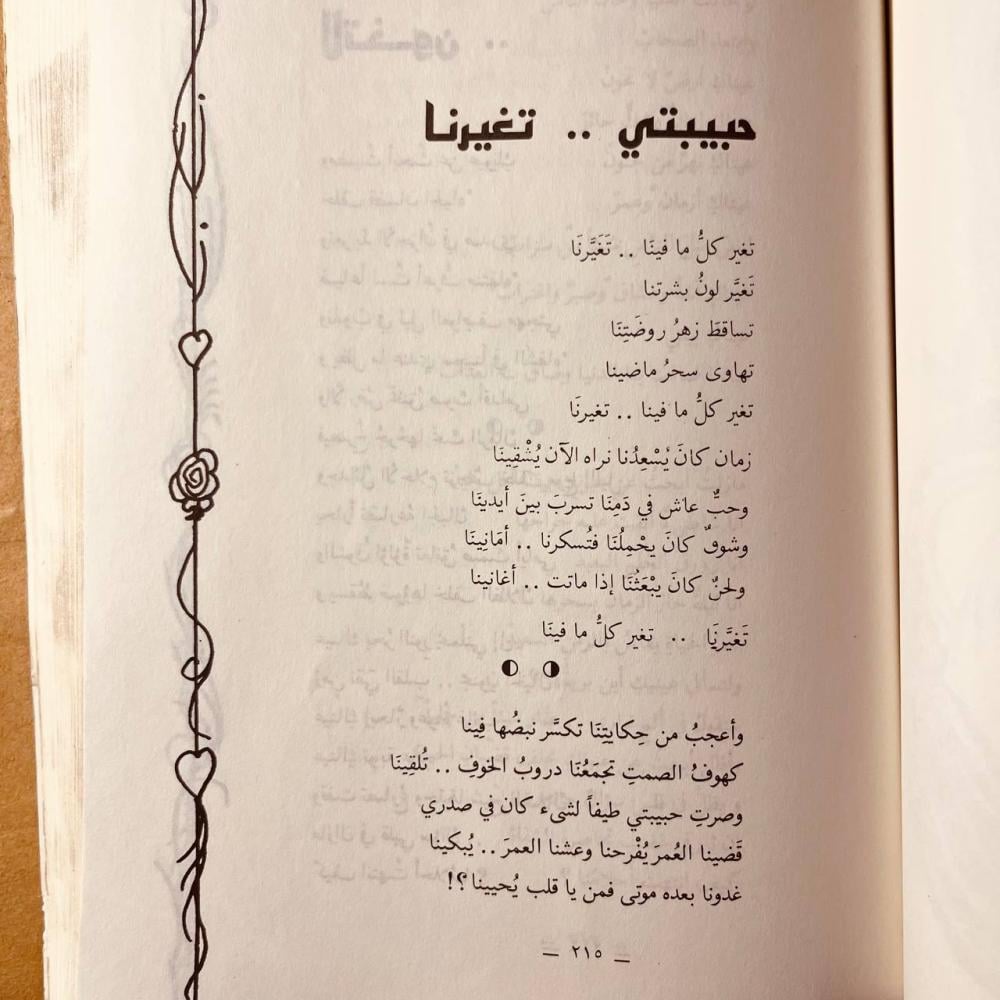 حبيبتي .. تغيرنا
تغير كلُّ ما فينَا .. تَغَيَّرنَا
تَغيَّر لونُ بشرتنا
تساقطَ زهرُ روضَتِنَا
تهاوى سحرُ ماضينا
تغير كلُّ ما فينا .. تغيرنَا
زمان كانَ يُسْعِدُنا نراه الآن يُشْقِينَا
وحبٌّ عاش في دَمِنَا تسربَ بينَ أيدينَا
وشوقٌ كانَ يحْمِلُنَا فتُسكرنا .. أمَانِينَا
ولحنٌ كانَ يبْعَثُنَا إذا ماتت .. أغانينا
تَغيَّرنَا .. تغير كلُّ ما فينَا
وأعجبُ من حِكايتِنَا تكسَّر نبضُها فِينا
كهوفُ الصمتِ تجمَعُنَا دروبُ الخوفِ .. تُلقِينَا
وصرتِ حبيبتي طيفاً لشىء كان في صدري
قَضينا العُمرَ يُفْرحنا وعشنا العمرَ .. يُبكينا
غدونا بعده موتى فمن يا قلب يُحيينا ؟!
— ٢١٥ —